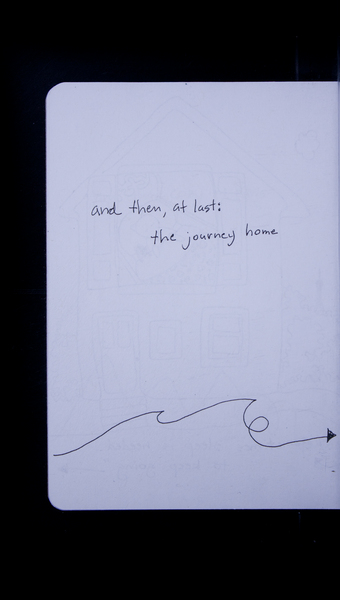 and then, at last:
the journey home